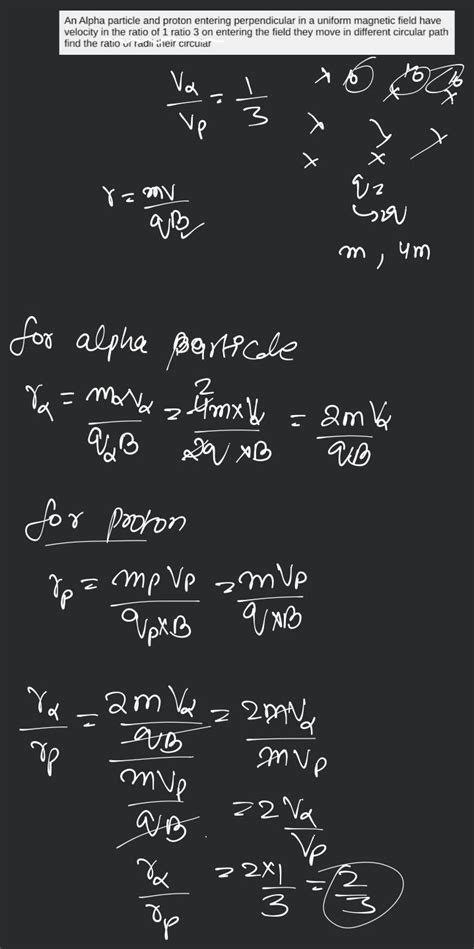 An Alpha particle and proton entering perpendicular in a uniform magnetic field have
velocity in the ratio of 1 ratio 3 on entering the field they move in different circular path
find the ratio of radii their circular
Vα/Vp = 1/3
r = mV/qB
q =
→ 2q
m, 4m
for alpha particle
rα = mαVα/qαB = 4m×Vα/2q×B = 2mVα/qB
2
for proton
rp = mpVp/qp×B = mVp/q×B
rα/rp = 2mVα/qB / mVp/qB = 2mVα/mVp
= 2Vα/Vp
rα/rp = 2×1/3 = 2/3